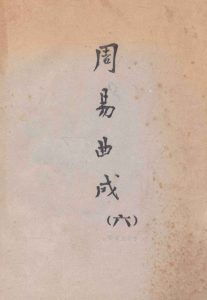 周易曲成
(六)